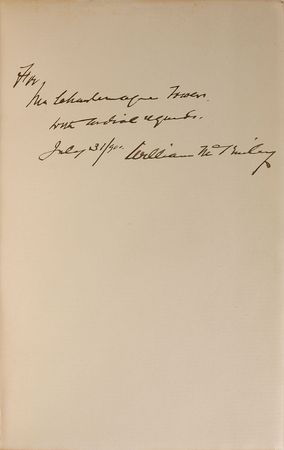 For,
Mr Charlemagne Tower.
with cordial regards.
July 31/90. William McKinley